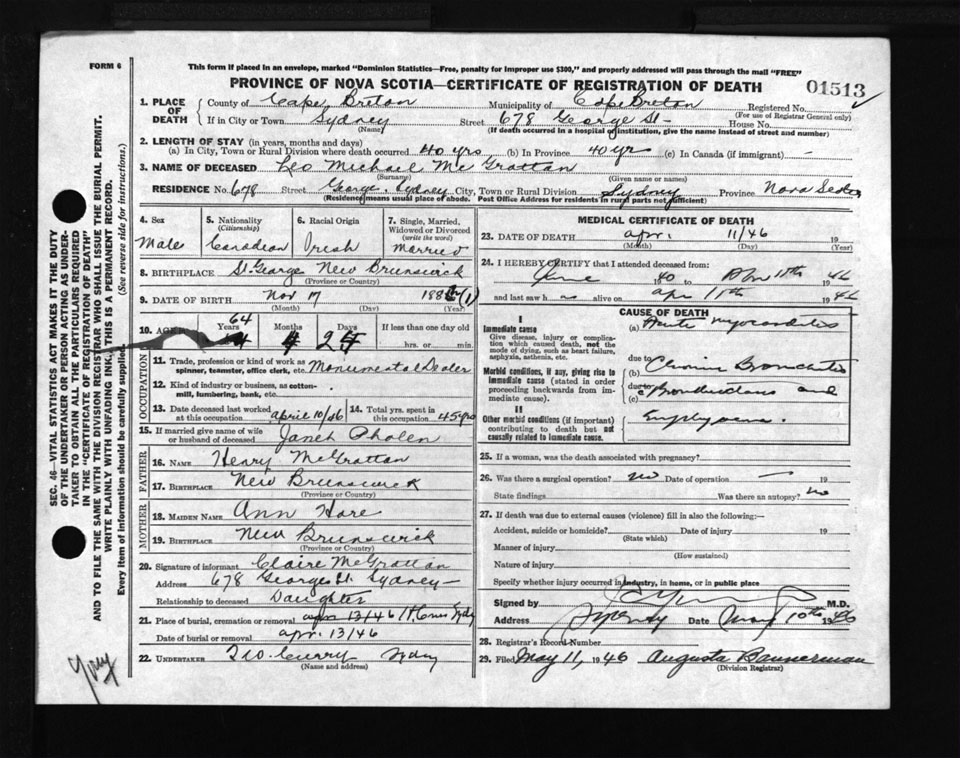 FORM 6
This form if placed in an envelope, marked "Dominion Statistics—Free, penalty for improper use $300," and properly addressed will pass through the mail "FREE"
PROVINCE OF NOVA SCOTIA—CERTIFICATE OF REGISTRATION OF DEATH
01513
1. PLACE OF DEATH
County of Cape Breton Municipality of Cape Breton Registered No.
(For use of Registrar General only)
If in City or Town Sydney Street 678 George St- House No.
(Name) (If death occurred in a hospital or institution, give the name instead of street and number)
2. LENGTH OF STAY (in years, months and days)
(a) In City, Town or Rural Division where death occurred 40 yrs (b) In Province 40 yrs (c) In Canada (if immigrant) -
3. NAME OF DECEASED Leo Michael McGrattan
(Surname) (Given name or names)
RESIDENCE No. 678 Street George, Sydney City, Town or Rural Division Sydney Province Nova Scotia
(Residence means usual place of abode. Post Office Address for residents in rural parts not sufficient)
4. Sex Male
5. Nationality (Citizenship) Canadian
6. Racial Origin Irish
7. Single, Married, Widowed or Divorced (write the word) Married
8. BIRTHPLACE St. George New Brunswick
(Province or Country)
9. DATE OF BIRTH Nov 17 188 (1)
(Month) (Day) (Year)
10. AGE 64 Years 4 Months 24 Days If less than one day old
hrs. or min.
OCCUPATION
11. Trade, profession or kind of work as spinner, teamster, office clerk, etc. Monumental Dealer
12. Kind of industry or business, as cotton-mill, lumbering, bank, etc.
13. Date deceased last worked at this occupation April 10/46
14. Total yrs. spent in this occupation 45 yrs
15. If married give name of wife or husband of deceased Janet Phalen
FATHER
16. NAME Henry McGrattan
17. BIRTHPLACE New Brunswick
(Province or Country)
MOTHER
18. MAIDEN NAME Ann Hare
19. BIRTHPLACE New Brunswick
(Province or Country)
20. Signature of informant Claire McGrattan
Address 678 George St. Sydney-
Relationship to deceased Daughter
21. Place of burial, cremation or removal apr 13/46
Date of burial or removal apr. 13/46
22. UNDERTAKER Curry Sydney
(Name and address)
MEDICAL CERTIFICATE OF DEATH
23. DATE OF DEATH apr. 11/46 19
(Month) (Day) (Year)
24. I HEREBY CERTIFY that I attended deceased from:
June 1940 Apr 11th 1946
and last saw h alive on apr 11th 1946
CAUSE OF DEATH
I
Immediate cause
Give disease, injury or complication which caused death, not the mode of dying, such as heart failure, asphyxia, asthenia, etc.
(a) Acute myocarditis
due to
Morbid conditions, if any, giving rise to immediate cause (stated in order proceeding backwards from immediate cause).
(b) Chronic Bronchitis
due to
(c) and
II
Other morbid conditions (if important) contributing to death but not causally related to immediate cause.
25. If a woman, was the death associated with pregnancy?
26. Was there a surgical operation? no Date of operation - 19
State findings Was there an autopsy? no
27. If death was due to external causes (violence) fill in also the following:—
Accident, suicide or homicide? Date of injury 19
(State which)
Manner of injury
(How sustained)
Nature of injury
Specify whether injury occurred in industry, in home, or in public place
Signed by M.D.
Address Sydney Date May 10th 1946
28. Registrar's Record Number
29. Filed May 11, 1946 Augusta Bannerman
(Division Registrar)
SEC. 46 VITAL STATISTICS ACT MAKES IT THE DUTY
OF THE UNDERTAKER OR PERSON ACTING AS UNDER-
TAKER TO OBTAIN ALL THE PARTICULARS REQUIRED
IN THE "CERTIFICATE OF REGISTRATION OF DEATH"
AND TO FILE THE SAME WITH THE DIVISION REGISTRAR WHO SHALL ISSUE THE BURIAL PERMIT.
WRITE PLAINLY WITH UNFADING INK. THIS IS A PERMANENT RECORD.
Every item of information should be carefully supplied. (See reverse side for instructions.)